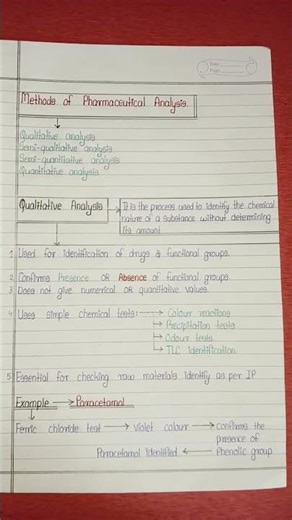 Date
Page
Methods of Pharmaceutical Analysis.
Qualitative analysis
Semi-qualitative analysis
Semi-quantitative analysis
Quantitative analysis
Qualitative Analysis → It is the process used to identify the chemical
nature of a substance without determining
its amount
1 Used for identification of drugs & functional groups.
2 Confirms Presence OR Absence of functional groups.
3 Does not give numerical OR quantitative values.
4 Uses simple chemical tests: → Colour reactions
→ Precipitation tests
→ Odour tests
→ TLC identification
5 Essential for checking raw materials identify as per IP
Example → Paracetamol
Ferric chloride test → Violet colour → Confirms the
presence of
Paracetamol identified ← Phenolic group